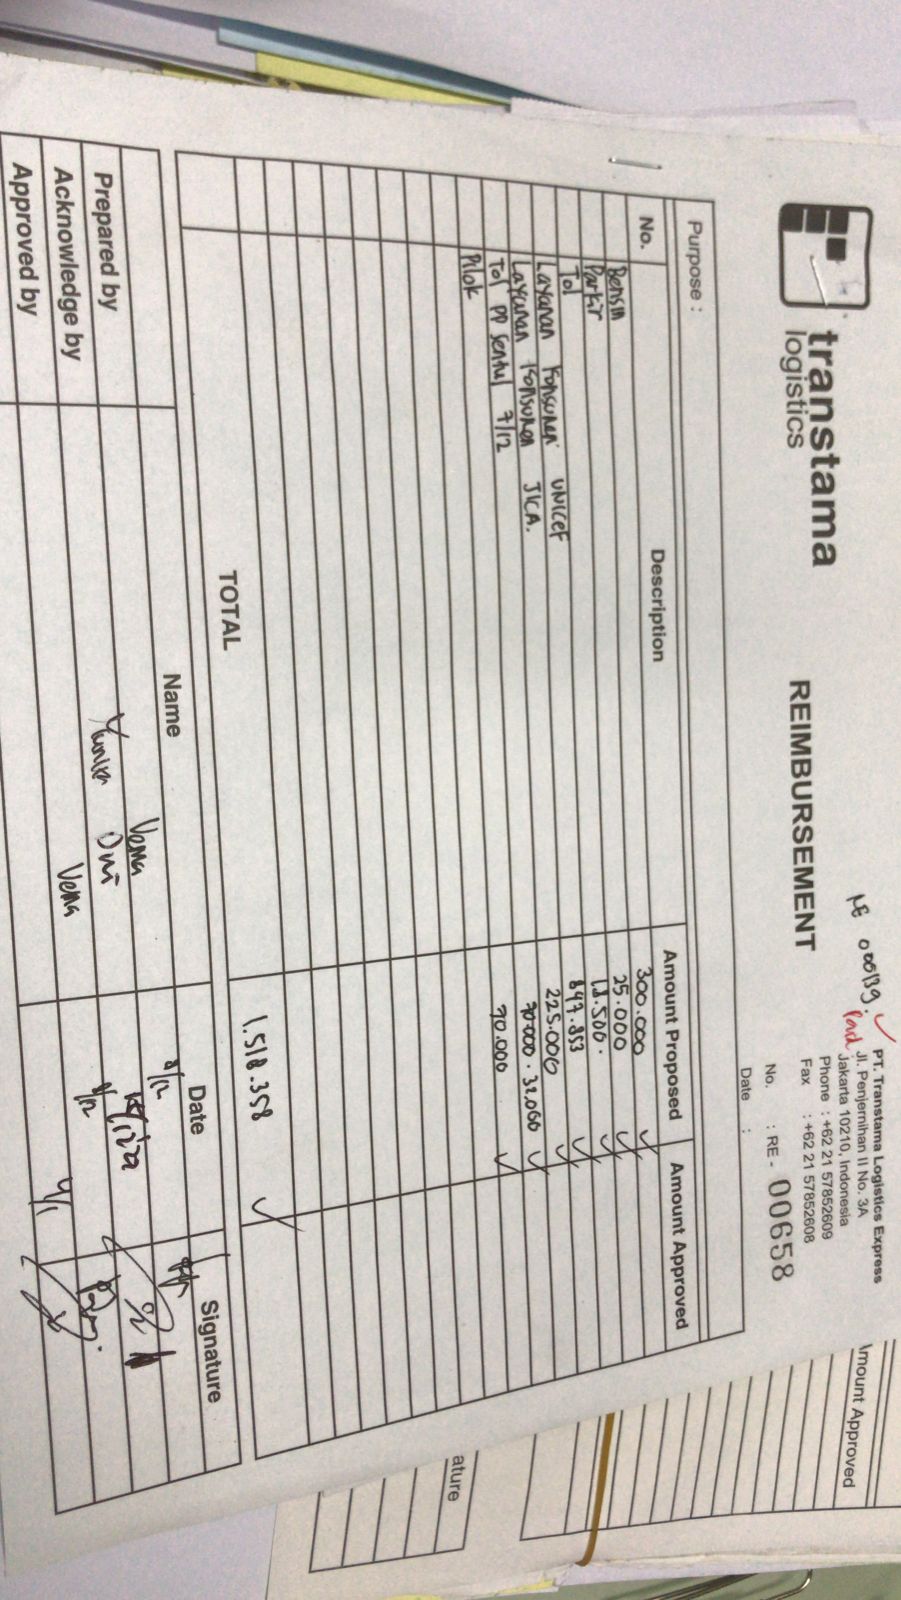 transtama
logistics
REIMBURSEMENT
PT. Transtama Logistics Express
Jl. Penjernihan II No. 3A
Jakarta 10210, Indonesia
Phone : +62 21 57852609
Fax : +62 21 57852608
No. : RE - 00658
Date :
Purpose :
No. Description Amount Proposed Amount Approved
Bensin 300.000
Parkir 25.000
Tol
Layanan Konsumen UNICEF
Layanan Konsumen JICA. 225.000
Tol PP Sentul 7/12
Pilok 90.000
TOTAL 1.518.358
Name Date Signature
Vema 8/12
Prepared by
Acknowledge by
Approved by Vema
mount Approved
ature